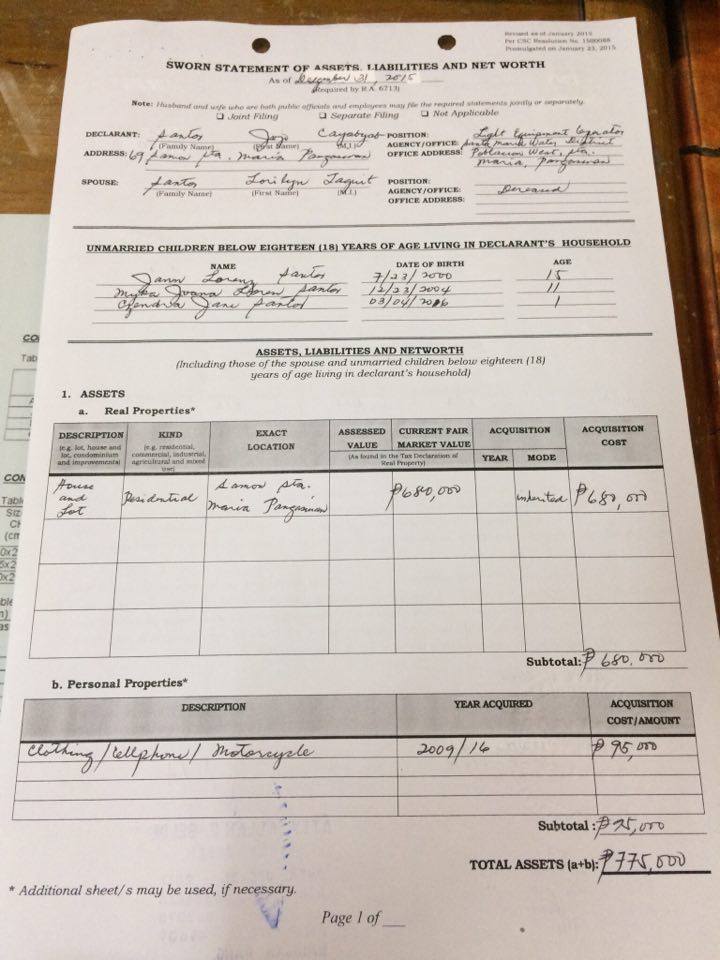 Revised as of January 2015
Per CSC Resolution No. 1500088
Promulgated on January 23, 2015
SWORN STATEMENT OF ASSETS, LIABILITIES AND NET WORTH
As of December 31, 2015
(Required by R.A. 6713)
Note: Husband and wife who are both public officials and employees may file the required statements jointly or separately.
☐ Joint Filing ☐ Separate Filing ☐ Not Applicable
DECLARANT: Santos Jojo Cayabyab POSITION: Light Equipment Operator
(Family Name) (First Name) (M.I.) AGENCY/OFFICE: Santa Maria Water District
ADDRESS: 69 Samon Sta. Maria Pangasinan OFFICE ADDRESS: Poblacion West, Sta.
Maria, Pangasinan
SPOUSE: Santos Lorilyn Taguit POSITION:
(Family Name) (First Name) (M.I.) AGENCY/OFFICE: Deceased
OFFICE ADDRESS:
UNMARRIED CHILDREN BELOW EIGHTEEN (18) YEARS OF AGE LIVING IN DECLARANT'S HOUSEHOLD
NAME DATE OF BIRTH AGE
Jann Lorenz Santos 7/23/2000 15
Joana Santos 12/23/2004 11
Jane Santos 03/04/ 1
ASSETS, LIABILITIES AND NETWORTH
(Including those of the spouse and unmarried children below eighteen (18)
years of age living in declarant's household)
1. ASSETS
a. Real Properties*
DESCRIPTION KIND EXACT LOCATION ASSESSED VALUE CURRENT FAIR MARKET VALUE ACQUISITION ACQUISITION COST
(e.g. lot, house and lot, condominium and improvements) (e.g. residential, commercial, industrial, agricultural and mixed use) (As found in the Tax Declaration of Real Property) YEAR MODE
House and Lot Residential Samon Sta. Maria Pangasinan ₱680,000 inherited ₱680,000
Subtotal: ₱680,000
b. Personal Properties*
DESCRIPTION YEAR ACQUIRED ACQUISITION COST/AMOUNT
Clothing/Cellphone/Motorcycle 2009/14 ₱95,000
Subtotal : ₱95,000
TOTAL ASSETS (a+b): ₱775,000
* Additional sheet/s may be used, if necessary.
Page 1 of __